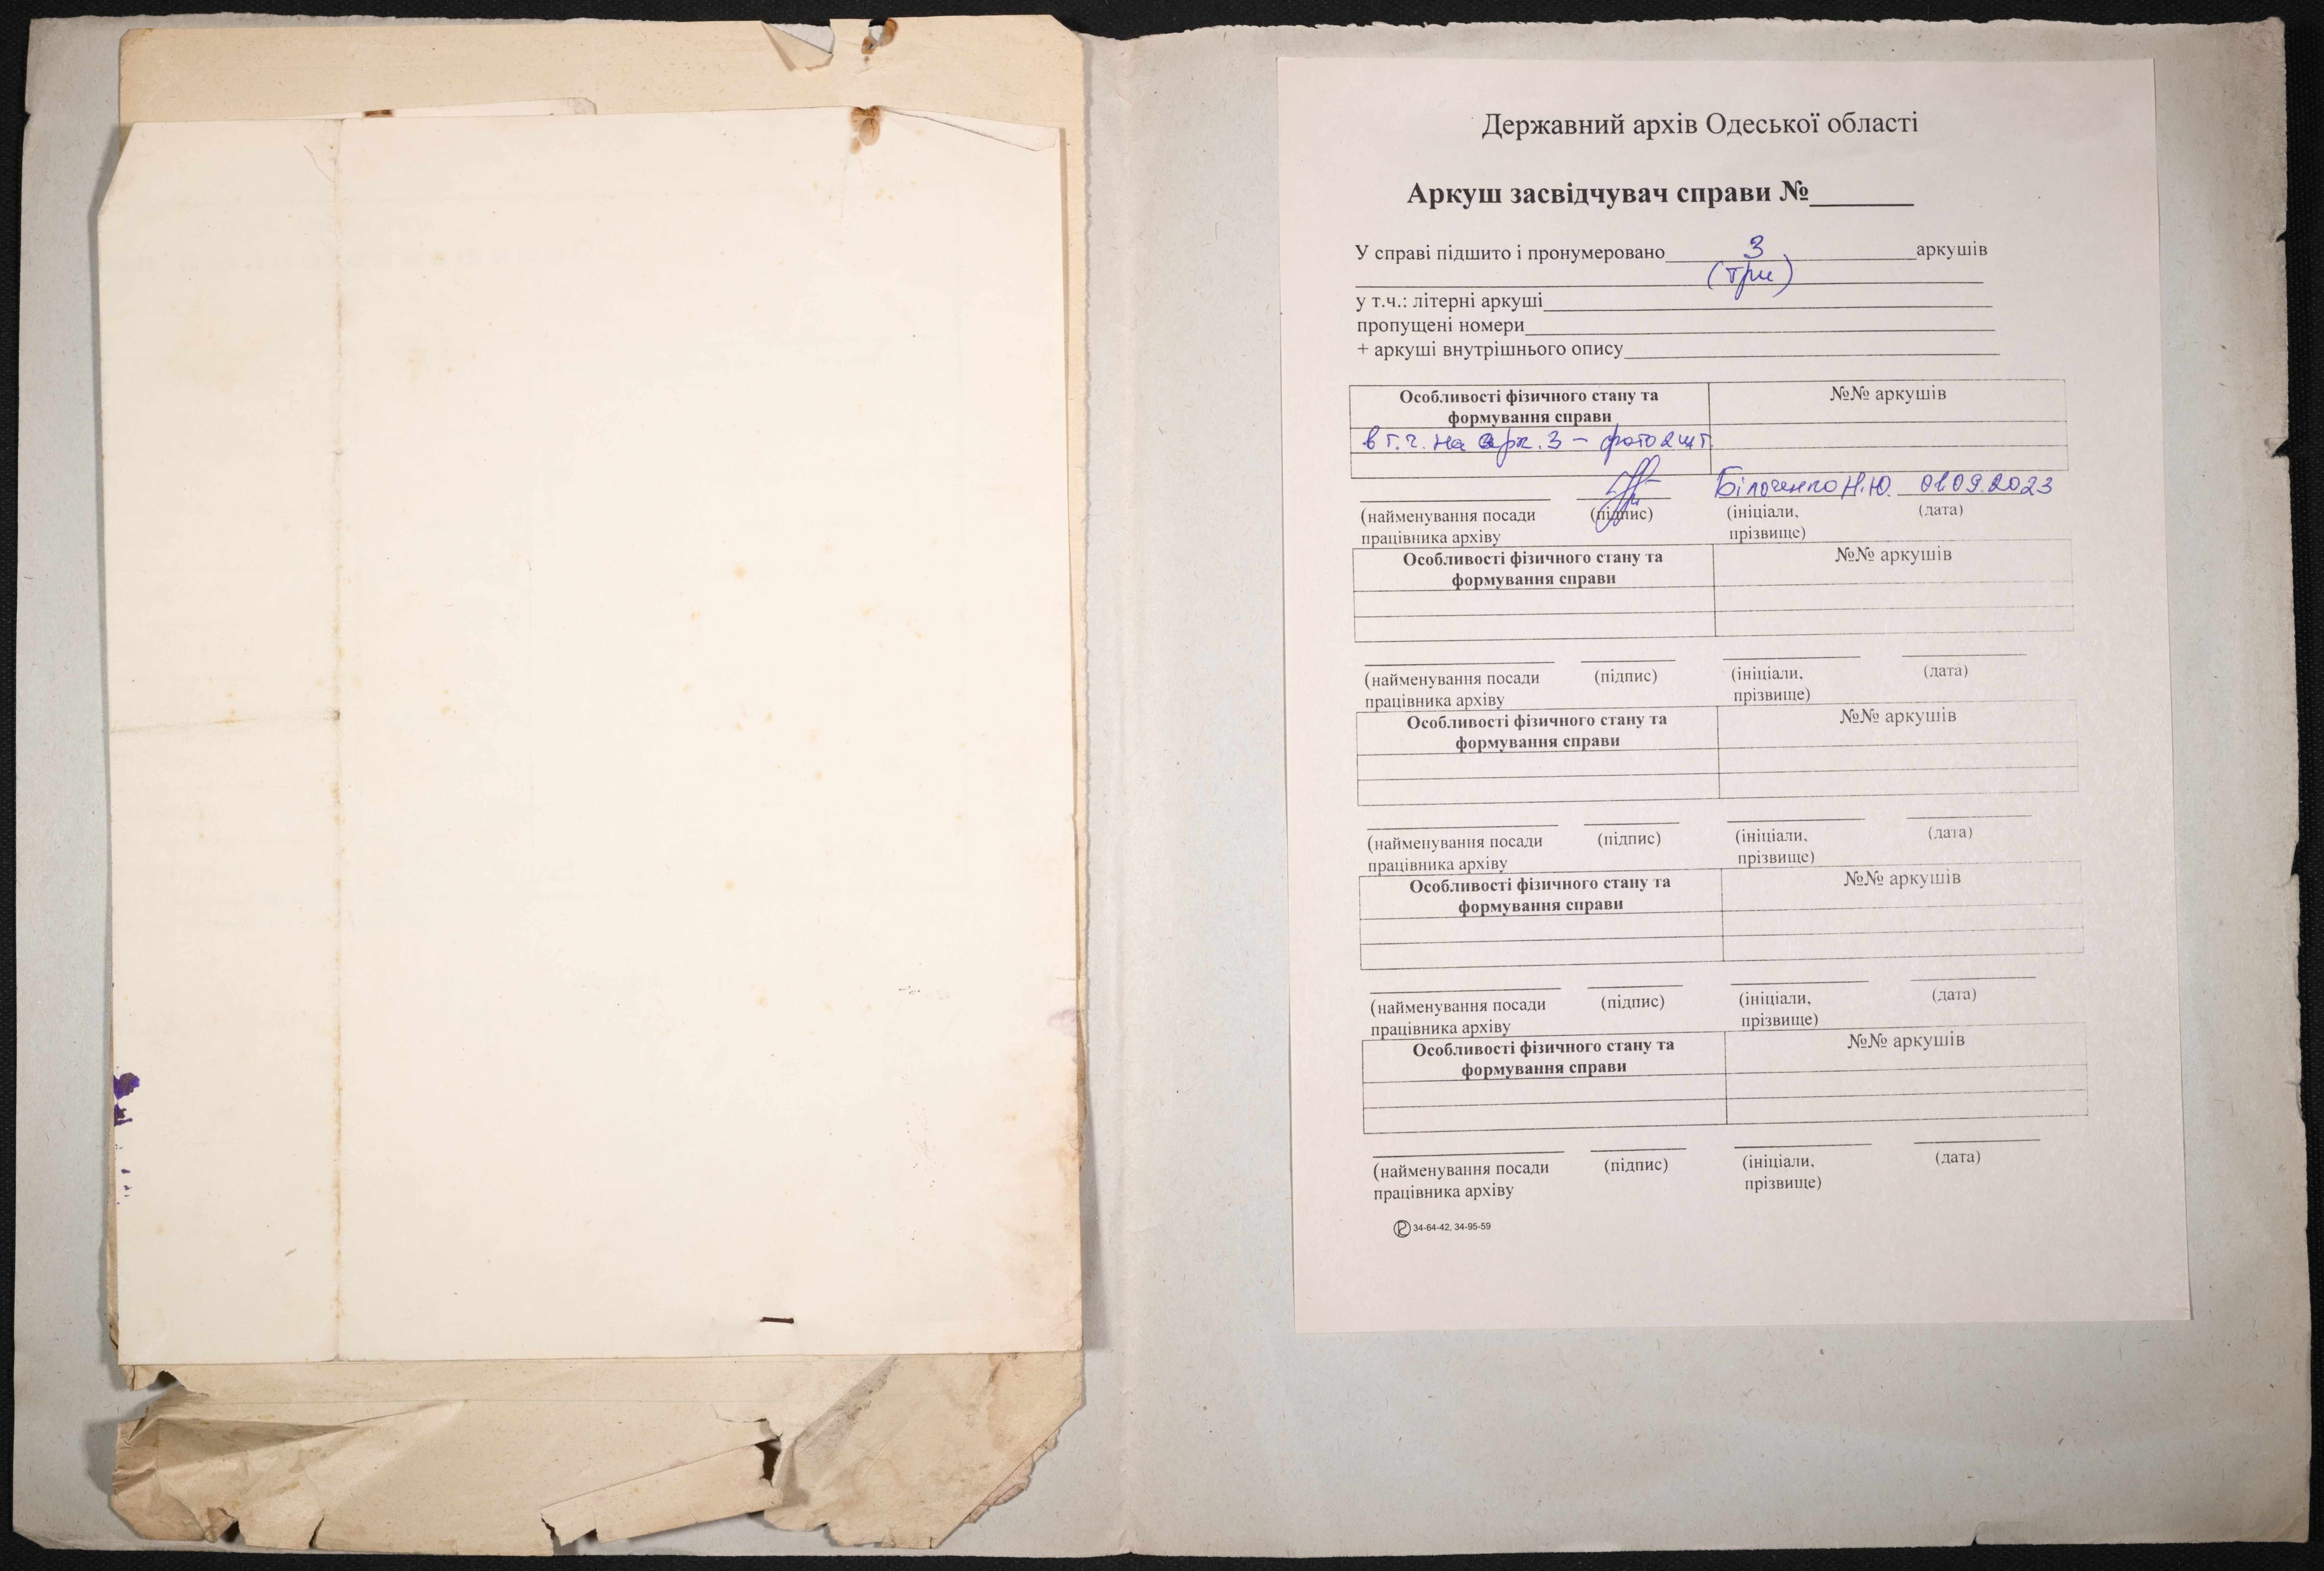 Державний архів Одеської області
Аркуш засвідчувач справи №
У справі підшито і пронумеровано 3 аркушів
(три)
у т.ч.: літерні аркуші
пропущені номери
+ аркуші внутрішнього опису
Особливості фізичного стану та №№ аркушів
формування справи
в т.ч. на арк. 3 – фото 2 шт
Білоченко Н.Ю. 01.09.2023
(найменування посади (підпис) (ініціали, (дата)
працівника архіву прізвище)
Особливості фізичного стану та №№ аркушів
формування справи
(найменування посади (підпис) (ініціали, (дата)
працівника архіву прізвище)
Особливості фізичного стану та №№ аркушів
формування справи
(найменування посади (підпис) (ініціали, (дата)
працівника архіву прізвище)
Особливості фізичного стану та №№ аркушів
формування справи
(найменування посади (підпис) (ініціали, (дата)
працівника архіву прізвище)
Особливості фізичного стану та №№ аркушів
формування справи
(найменування посади (підпис) (ініціали, (дата)
працівника архіву прізвище)
34-64-42, 34-95-59